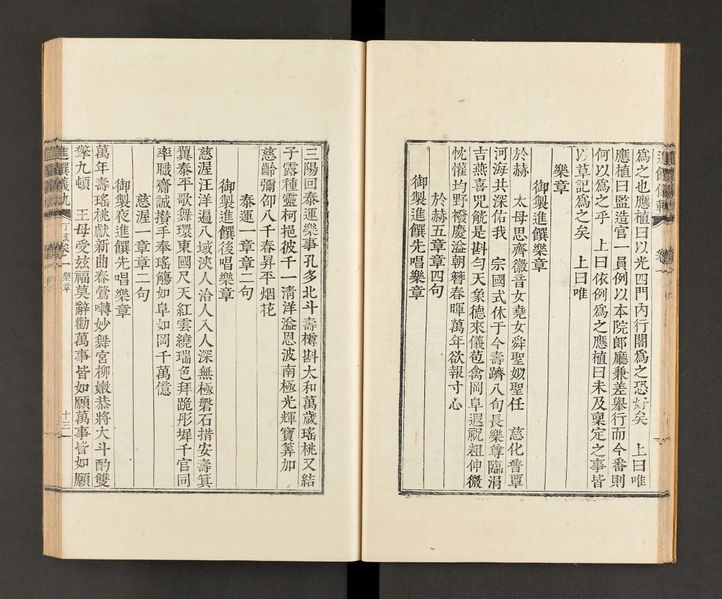 為之也應植曰以光四門內行閣為之恐好矣 上曰唯
應植曰監造官一員例以本院郎廳兼差舉行而今番則
何以為之乎 上曰依例為之應植曰未及稟定之事皆
以草記為之矣 上曰唯
樂章
御製進饌樂章
於赫 太母思齊徽音女堯女舜聖姒聖任 慈化普覃
河海共深佑我 宗國式休于今壽躋八旬長樂尊臨涓
吉燕喜咒觥是斟勻天象德來儀苞禽岡阜遐祝粗伸微
忱懽均野襏慶溢朝簪春暉萬年欲報寸心
於赫五章章四句
御製進饌先唱樂章
三陽回泰運樂事孔多北斗壽樽斟太和萬歲瑤桃又結
子露種靈柯挹彼千一清洋溢恩波南極光輝寶筭加
慈齡彌卲八千春昇平烟花
泰運一章章二句
御製進饌後唱樂章
慈渥汪洋遍八域浹人洽人入人深無極磐石措安壽箕
翼泰平歌舞環東國尺天紅雲繞瑞色拜跪彤墀千官同
率職齋誠攢手奉瑤觴如阜如岡千萬億
慈渥一章章二句
御製夜進饌先唱樂章
萬年壽瑤桃獻新曲春鶯囀妙舞宮柳嫩恭將大斗酌雙
擎九頓 王母受玆福莫辭勸萬事皆如願萬事皆如願
進饌儀軌 丁亥 卷一 樂章 十三